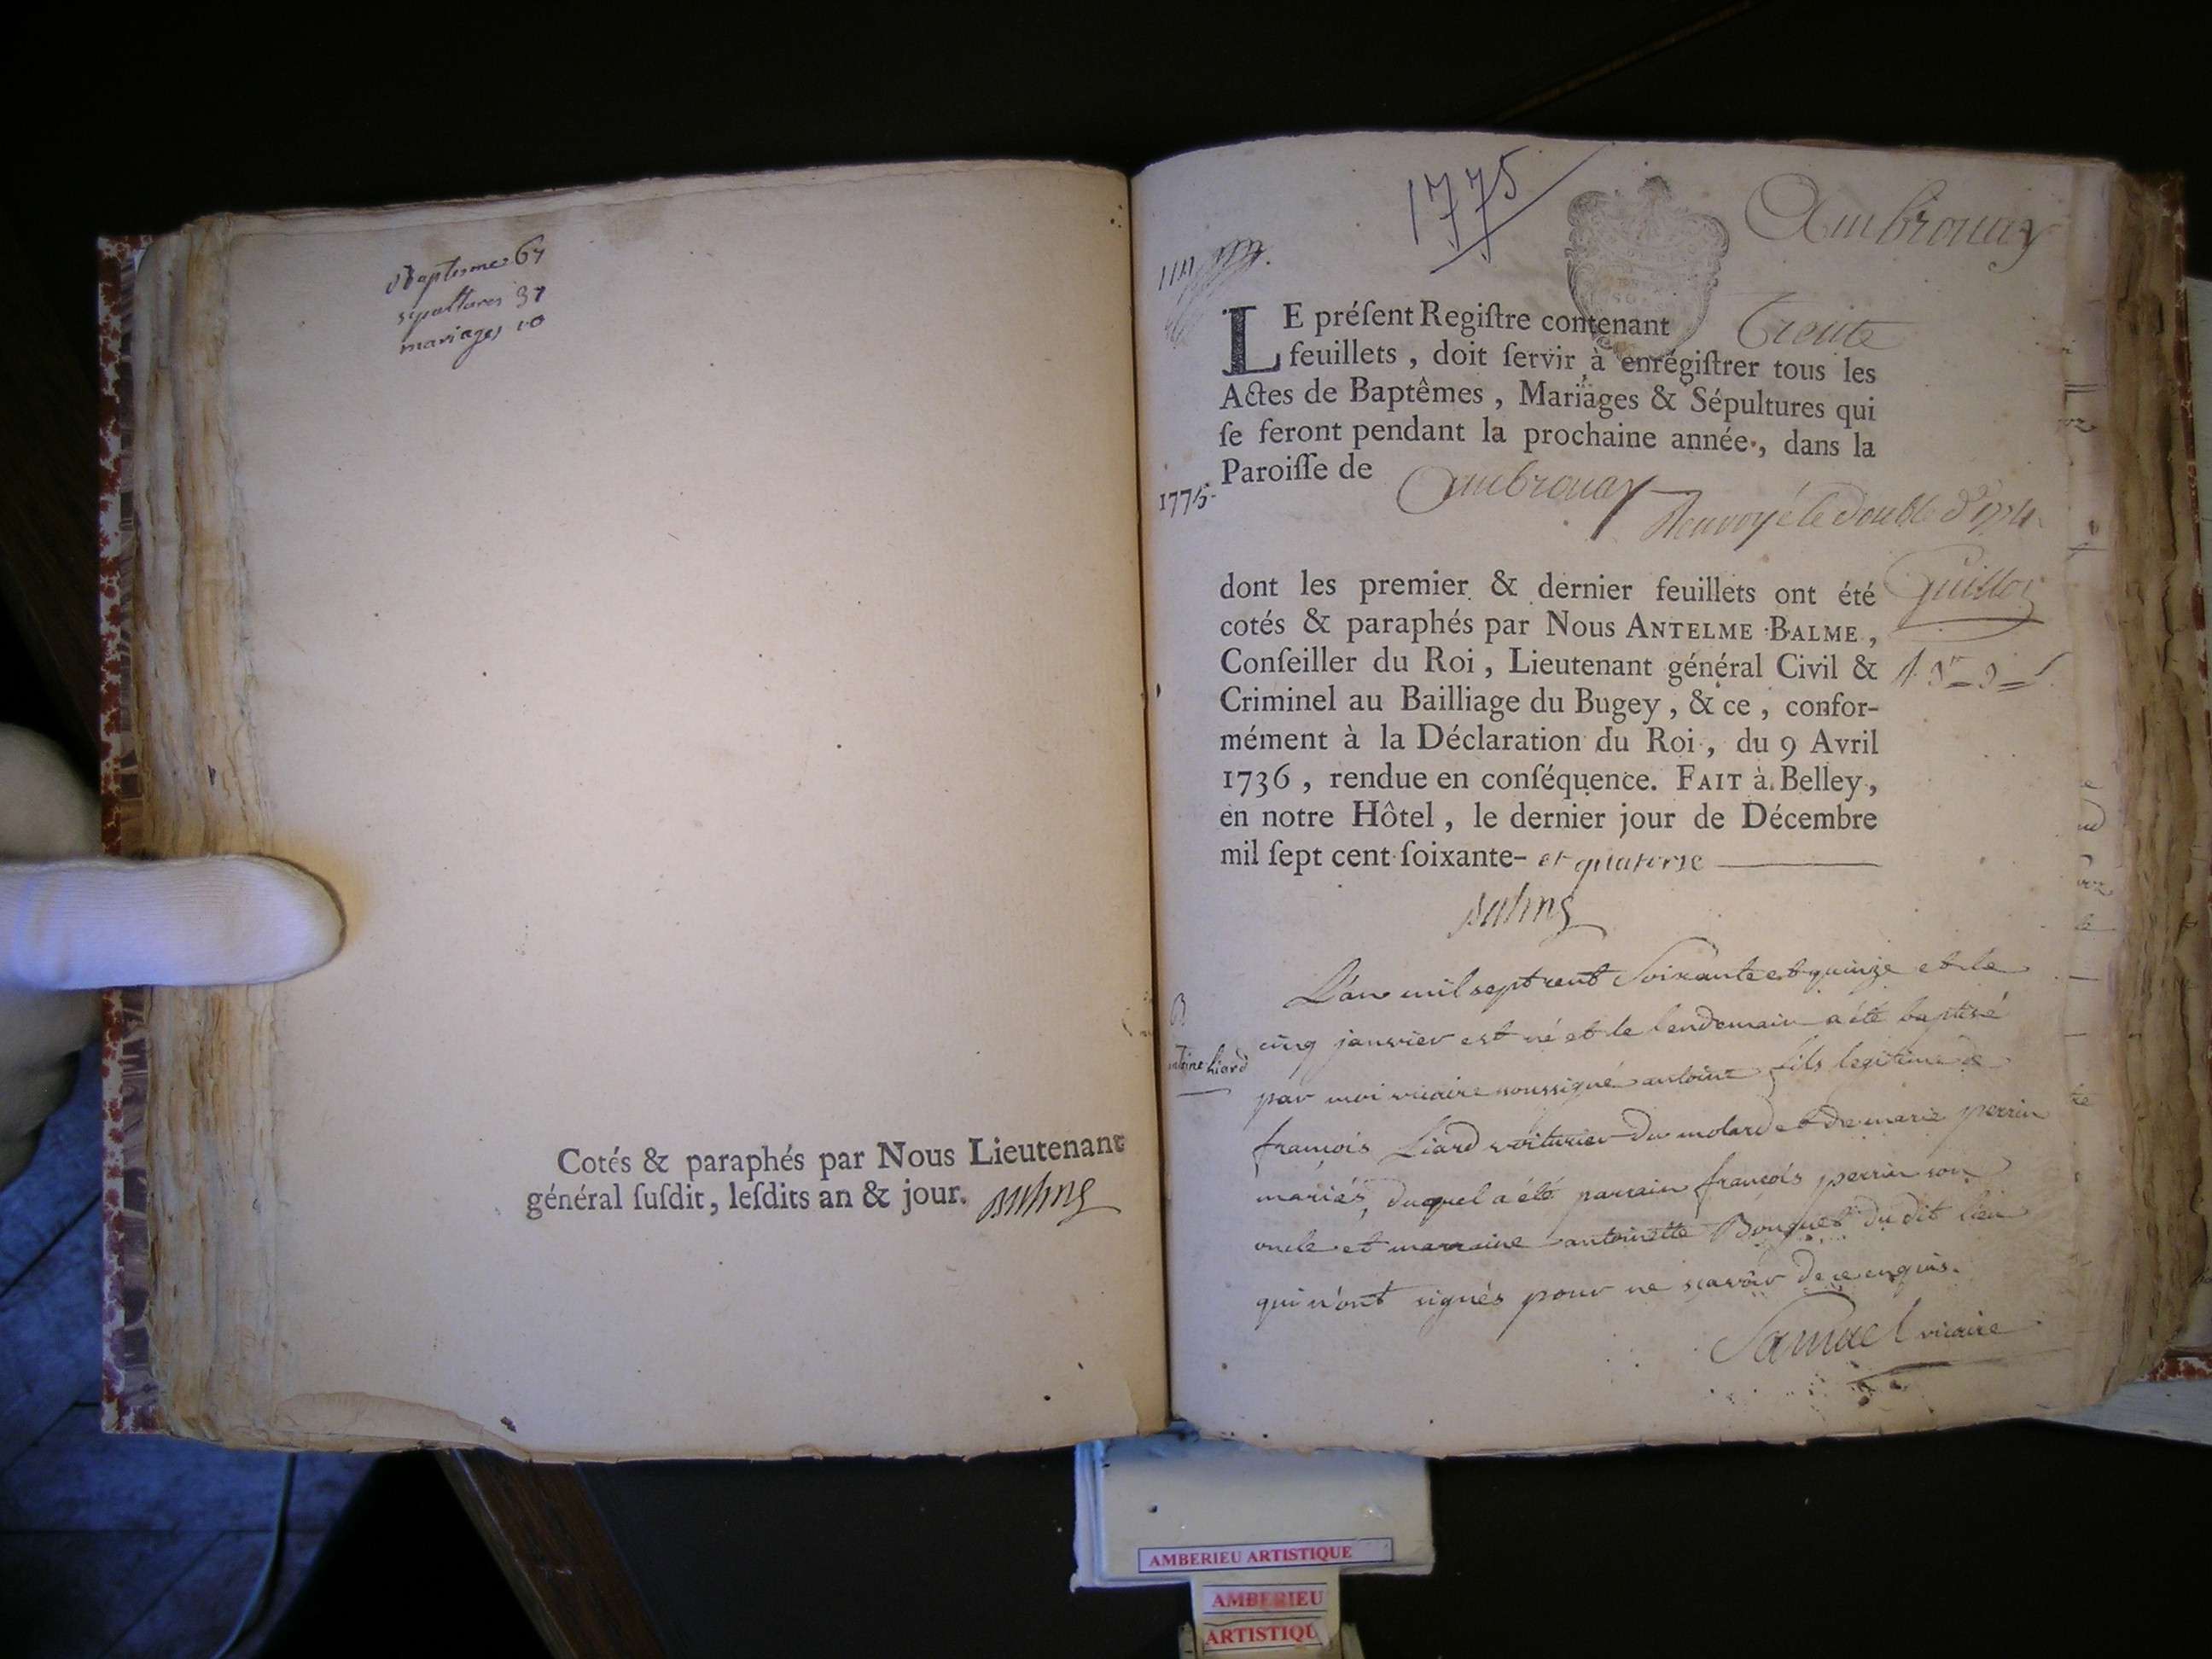 Baptesmes 67
sepultures 37
mariages 10
Cotés & paraphés par Nous Lieutenant
général ſuſdit, leſdits an & jour.
1775
Ambronay
LE préſent Regiſtre contenant Trente
feuillets, doit ſervir à enrégiſtrer tous les
Actes de Baptêmes, Mariages & Sépultures qui
ſe feront pendant la prochaine année, dans la
Paroiſſe de Ambronay
1775.
Renvoyé le double d'
dont les premier & dernier feuillets ont été
cotés & paraphés par Nous ANTELME BALME,
Conſeiller du Roi, Lieutenant général Civil &
Criminel au Bailliage du Bugey, & ce, confor-
mément à la Déclaration du Roi, du 9 Avril
1736, rendue en conſéquence. FAIT à Belley,
en notre Hôtel, le dernier jour de Décembre
mil ſept cent ſoixante- et quatorse
B
antoine Liard
L'an mil sept cent soixante et quinze et le
cinq janvier est né et le lendemain a été baptisé
par moi vicaire soussigné antoine fils legitime de
françois Liard voiturier du molard et de marie perrin
mariés, duquel a été parrain françois perrin son
oncle et marraine antoinette Bouquet du dit lieu
qui n'ont signés pour ne scavoir de ce enquis.
Samuel vicaire
AMBERIEU ARTISTIQUE
AMBERIEU
ARTISTIQU